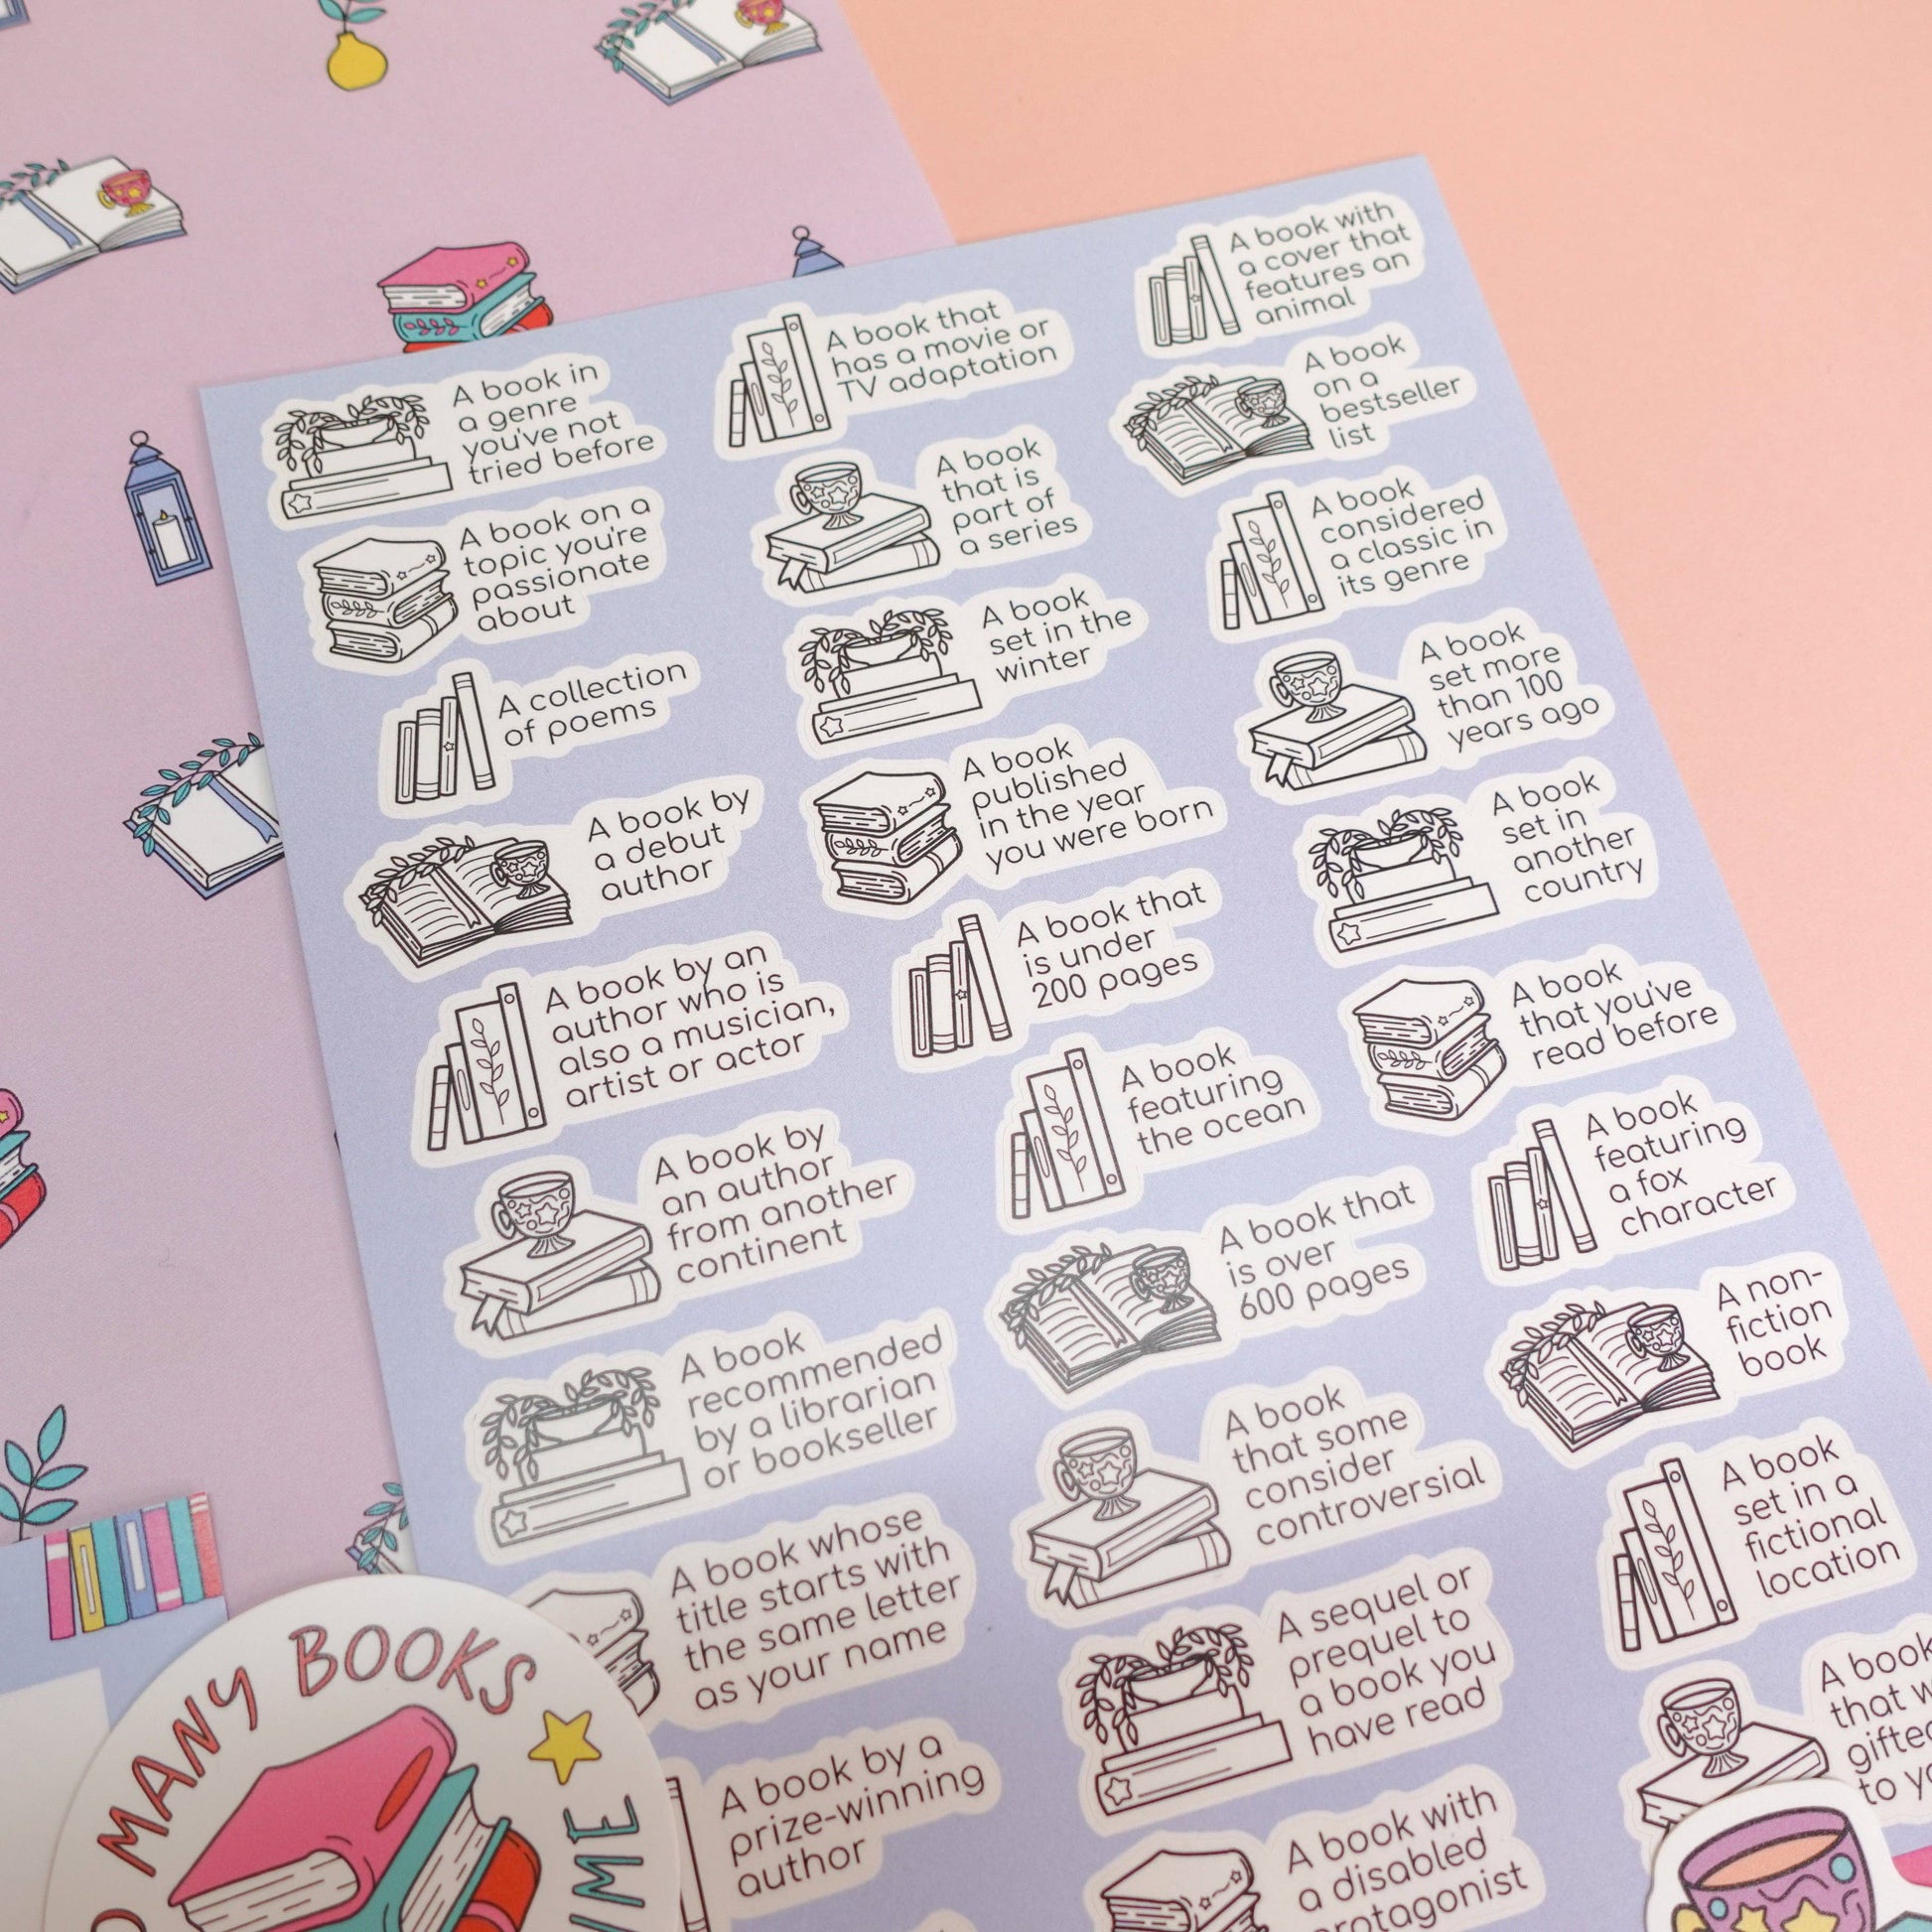 A book in
a genre
you've not
tried before
A book on a
topic you're
passionate
about
A collection
of poems
A book by
a debut
author
A book by an
author who is
also a musician,
artist or actor
A book by
an author
from another
continent
A book
recommended
by a librarian
or bookseller
A book whose
title starts with
the same letter
as your name
A book by a
prize-winning
author
A book that
has a movie or
TV adaptation
A book
that is
part of
a series
A book
set in the
winter
A book
published
in the year
you were born
A book that
is under
200 pages
A book
featuring
the ocean
A book that
is over
600 pages
A book
that some
consider
controversial
A sequel or
prequel to
a book you
have read
A book with
a disabled
protagonist
A book with
a cover that
features an
animal
A book
on a
bestseller
list
A book
considered
a classic in
its genre
A book
set more
than 100
years ago
A book
set in
another
country
A book
that you've
read before
A book
featuring
a fox
character
A non-
fiction
book
A book
set in a
fictional
location
A book
that
to
MANY BOOKS